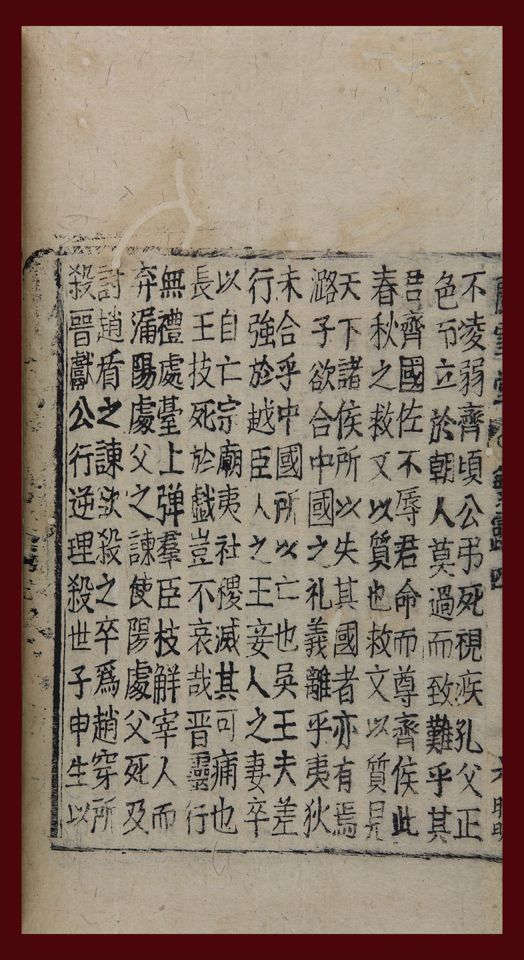 蘭雪堂 繁露四
不凌弱齊頃公弔死視疾孔父正
色而立於朝人莫過而致難乎其
君齊國佐不辱君命而尊齊侯此
春秋之救文以質也救文以質見
天下諸侯所以失其國者亦有焉
潞子欲合中國之礼義離乎夷狄
未合乎中國所以亡也吳王夫差
行強於越臣人之王妾人之妻卒
以自亡宗廟夷社稷滅其可痛也
長王技死於戲豈不哀哉晉靈行
無禮處臺上弹羣臣枝解宰人而
弃漏陽處父之諫使陽處父死及
討趙盾之諫欲殺之卒爲趙穿所
殺晉獻公行逆理殺世子申生以